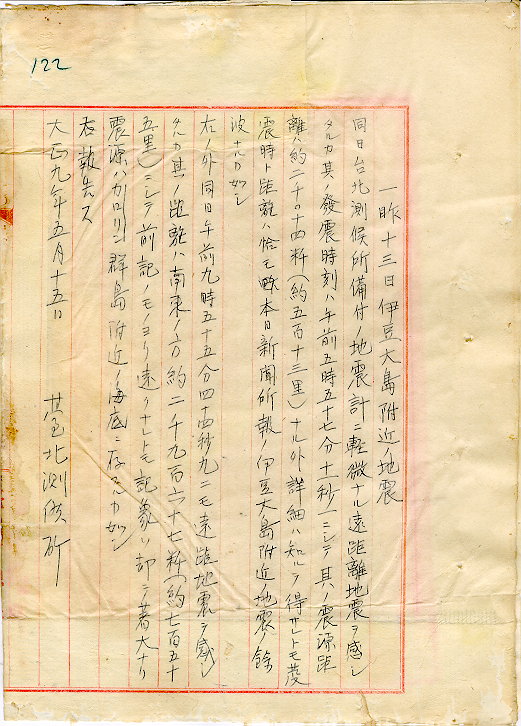 122
一昨十三日伊豆大島附近ノ地震
同日台北測候所備付ノ地震計ニ軽微ナル遠距離地震ヲ感シ
タルカ其ノ發震時刻ハ午前五時五十七分十一秒一ニシテ其ノ震源距
離ハ約二千〇十四粁(約五百十三里)ナル外詳細ハ知ルヲ得サレトモ発
震時ト距離ハ恰モ本日新聞所報ノ伊豆大島附近ノ地震ノ餘
波ナルカ如シ
右ノ外同日午前九時五十五分四十四秒九ニモ遠距地震ヲ感シ
タルカ其ノ距離ハ南東ノ方約二千九百六十七粁(約七百五十
五里)ニシテ前記ノモノヨリ遠クナレトモ記象ハ却テ著大ナリ
震源ハカロリン群島附近ノ海底ニ存スルカ如シ
右報告ス
大正九年五月十五日
臺北測候所